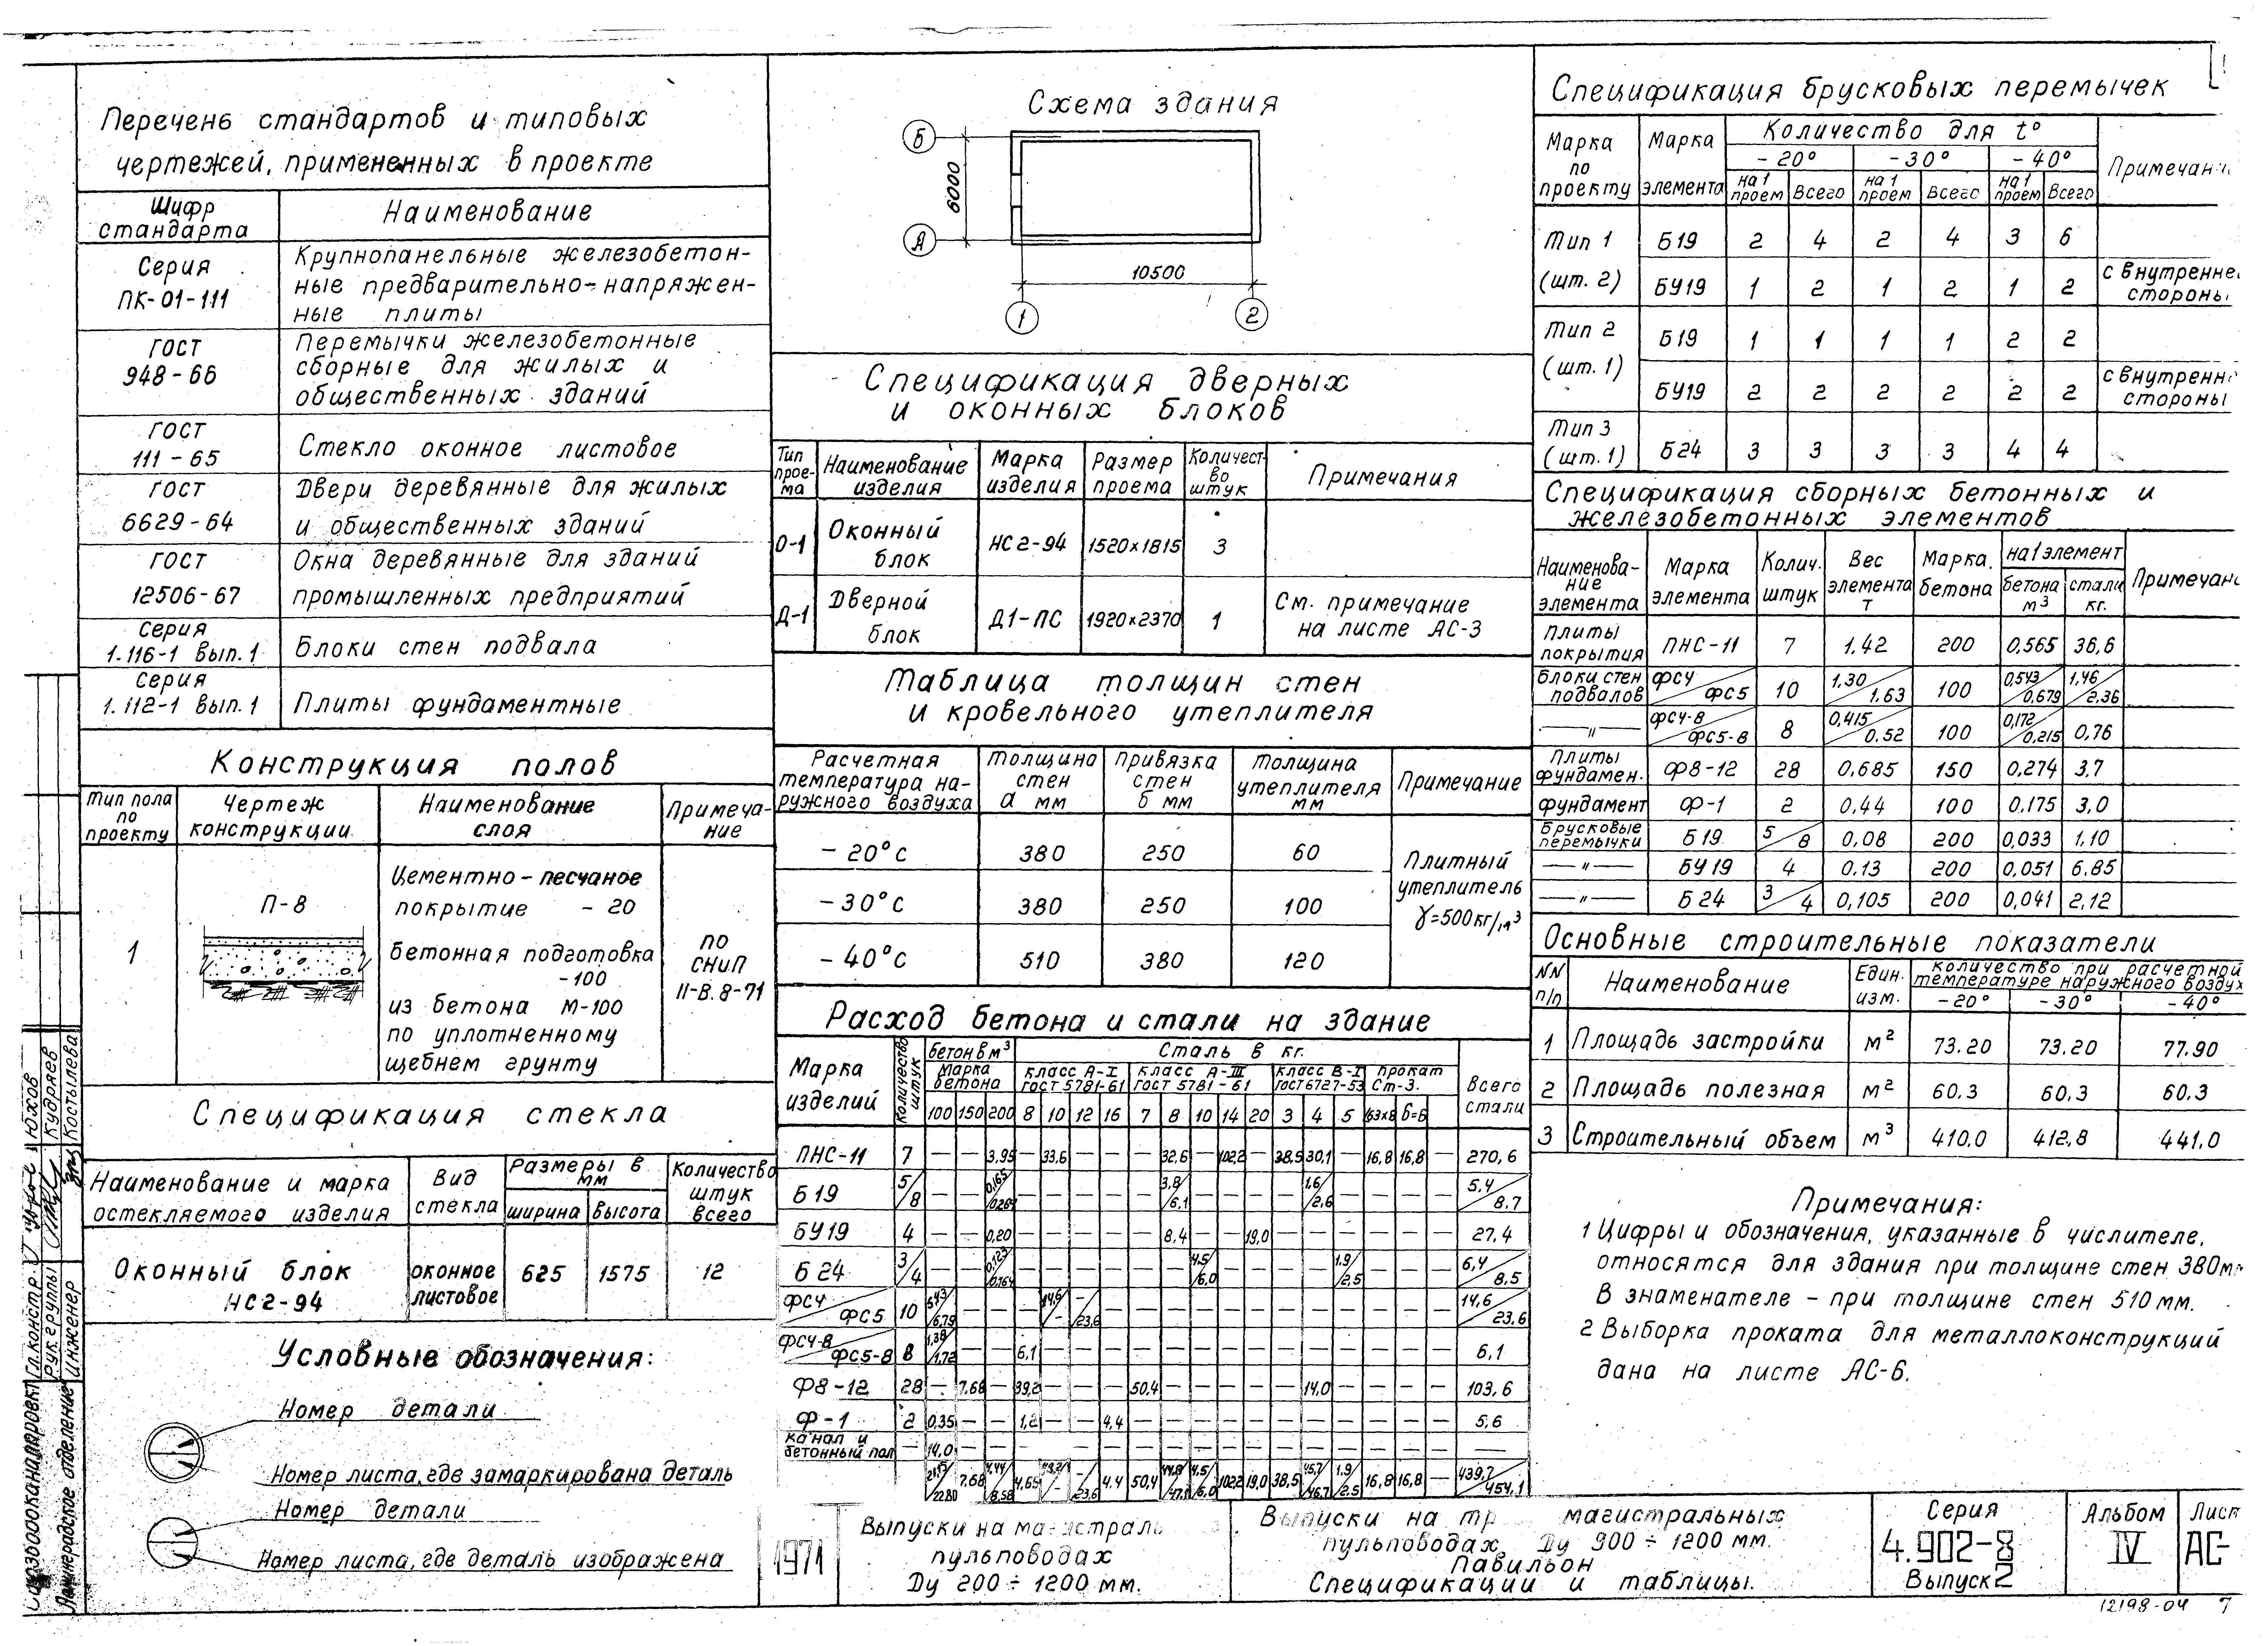 Перечень стандартов и типовых
чертежей, примененных в проекте
Шифр стандарта | Наименование
Серия ПК-01-111 | Крупнопанельные железобетон-
ные предварительно-напряжен-
ные плиты
ГОСТ 948-66 | Перемычки железобетонные
сборные для жилых и
общественных зданий
ГОСТ 111-65 | Стекло оконное листовое
ГОСТ 6629-64 | Двери деревянные для жилых
и общественных зданий
ГОСТ 12506-67 | Окна деревянные для зданий
промышленных предприятий
Серия 1.116-1 Вып.1 | Блоки стен подвала
Серия 1.112-1 Вып.1 | Плиты фундаментные
Конструкция полов
Тип пола по проекту | Чертеж конструкции | Наименование слоя | Примеча-ние
1 | П-8
Цементно-песчаное
покрытие - 20
бетонная подготовка
-100
из бетона М-100
по уплотненному
щебнем грунту
по
СНиП
II-В.8-71
Спецификация стекла
Наименование и марка остекляемого изделия | Вид стекла | Размеры в мм | ширина | высота | Количество штук всего
Оконный блок НС2-94 | оконное листовое | 625 | 1575 | 12
Условные обозначения:
Номер детали
Номер листа, где замаркирована деталь
Номер детали
Номер листа, где деталь изображена
Схема здания
Б
6000
А
10500
1
2
Спецификация дверных
и оконных блоков
Тип прое-ма | Наименование изделия | Марка изделия | Размер проема | Количест-во штук | Примечания
О-1 | Оконный блок | НС2-94 | 1520x1815 | 3
Д-1 | Дверной блок | Д1-ПС | 1920x2370 | 1 | См. примечание на листе АС-3
Таблица толщин стен
и кровельного утеплителя
Расчетная температура на-ружного воздуха | Толщина стен а мм | Привязка стен б мм | Толщина утеплителя мм | Примечание
-20°С | 380 | 250 | 60
-30°С | 380 | 250 | 100
-40°С | 510 | 380 | 120
Плитный
утеплитель
γ=500кг/м³
Расход бетона и стали на здание
Марка изделий | Количество штук | бетон в м³ | Сталь в кг. | Всего стали
Марка бетона | класс А-I ГОСТ 5781-61 | класс А-III ГОСТ 5781-61 | класс В-I ГОСТ 6727-53 | прокат Ст-3.
100 | 150 | 200 | 8 | 10 | 12 | 16 | 7 | 8 | 10 | 14 | 20 | 3 | 4 | 5 | 63x8 | б=6
ПНС-11 | 7 | — | — | 3,95 | — | 33,6 | — | — | — | 32,6 | — | 102,2 | — | 38,5 | 30,1 | — | 16,8 | 16,8 | — | 270,6
Б19 | 5/8 | — | — | 0,165/0,264 | — | — | — | — | — | 3,8/6,1 | — | — | — | — | 1,6/2,6 | — | — | — | — | 5,4/8,7
БУ19 | 4 | — | — | 0,20 | — | — | — | — | — | 8,4 | — | — | 19,0 | — | — | — | — | — | — | 27,4
Б24 | 3/4 | — | — | 0,123/0,164 | — | — | — | — | — | — | 4,5/6,0 | — | — | — | — | 1,9/2,5 | — | — | — | 6,4/8,5
ФС4/ФС5 | 10 | 5,43/6,79 | — | — | — | 14,6/- | -/23,6 | — | — | — | — | — | — | — | — | — | — | — | — | 14,6/23,6
ФС4-8/ФС5-8 | 8 | 1,38/1,72 | — | — | 6,1 | — | — | — | — | — | — | — | — | — | — | — | — | — | — | 6,1
Ф8-12 | 28 | — | 7,68 | — | 39,2 | — | — | — | 50,4 | — | — | — | — | — | 14,0 | — | — | — | — | 103,6
Ф-1 | 2 | 0,35 | — | — | 1,2 | — | — | 4,4 | — | — | — | — | — | — | — | — | — | — | — | 5,6
Канал и бетонный пол | — | 14,0 | — | — | — | — | — | — | — | — | — | — | — | — | — | — | — | — | — | —
22,80 | 7,68 | 4,44/8,58 | 4,65 | -/23,6 | 4,4 | 50,4 | 4,5/6,0 | 102,2 | 19,0 | 38,5 | 45,7/46,7 | 1,9/2,5 | 16,8 | 16,8 | — | 439,7/454,1
Спецификация брусковых перемычек
Марка по проекту | Марка элемента | Количество для t° | -20° | -30° | -40° | Примечан
на 1 проем | Всего | на 1 проем | Всего | на 1 проем | Всего
Тип 1 (шт. 2) | Б19 | 2 | 4 | 2 | 4 | 3 | 6
БУ19 | 1 | 2 | 1 | 2 | 1 | 2 | с внутренне стороны
Тип 2 (шт. 1) | Б19 | 1 | 1 | 1 | 1 | 2 | 2
БУ19 | 2 | 2 | 2 | 2 | 2 | 2 | с внутренн стороны
Тип 3 (шт. 1) | Б24 | 3 | 3 | 3 | 3 | 4 | 4
Спецификация сборных бетонных и
железобетонных элементов
Наименова-ние элемента | Марка элемента | Колич. штук | Вес элемента т | Марка бетона | на 1 элемент | бетона м³ | стали кг. | Примечан
Плиты покрытия | ПНС-11 | 7 | 1,42 | 200 | 0,565 | 36,6
Блоки стен подвалов | ФС4/ФС5 | 10 | 1,30/1.63 | 100 | 0,543/0,679 | 1,46/2.36
—"— | ФС4-8/ФС5-8 | 8 | 0,415/0.52 | 100 | 0,172/0,215 | 0,76
Плиты фундамен. | Ф8-12 | 28 | 0,685 | 150 | 0,274 | 3,7
фундамент | Ф-1 | 2 | 0,44 | 100 | 0,175 | 3,0
Брусковые перемычки | Б19 | 5/8 | 0,08 | 200 | 0,033 | 1,10
—"— | БУ19 | 4 | 0.13 | 200 | 0,051 | 6,85
—"— | Б24 | 3/4 | 0,105 | 200 | 0,041 | 2,12
Основные строительные показатели
NN п/п | Наименование | Един. изм. | количество при расчетной температуре наружного воздух
-20° | -30° | -40°
1 | Площадь застройки | м² | 73.20 | 73.20 | 77.90
2 | Площадь полезная | м² | 60.3 | 60.3 | 60.3
3 | Строительный объем | м³ | 410.0 | 412.8 | 441.0
Примечания:
1 Цифры и обозначения, указанные в числителе,
относятся для здания при толщине стен 380мм
В знаменателе - при толщине стен 510 мм.
2 Выборка проката для металлоконструкций
дана на листе АС-6.
1971
Выпуски на магистраль
пульповодах
Ду 200 ÷ 1200 мм.
Выпуски на тр магистральных
пульповодах Ду 900 ÷ 1200 мм.
Павильон
Спецификации и таблицы.
Серия
4.902-8
Выпуск 2
Альбом
IV
Лист
АС-
12198-04 7
Союзводоканалпроект
Ленинградское отделение
Гл. констр.
Рук. группы
Инженер
Юхов
Кудряев
Костылева